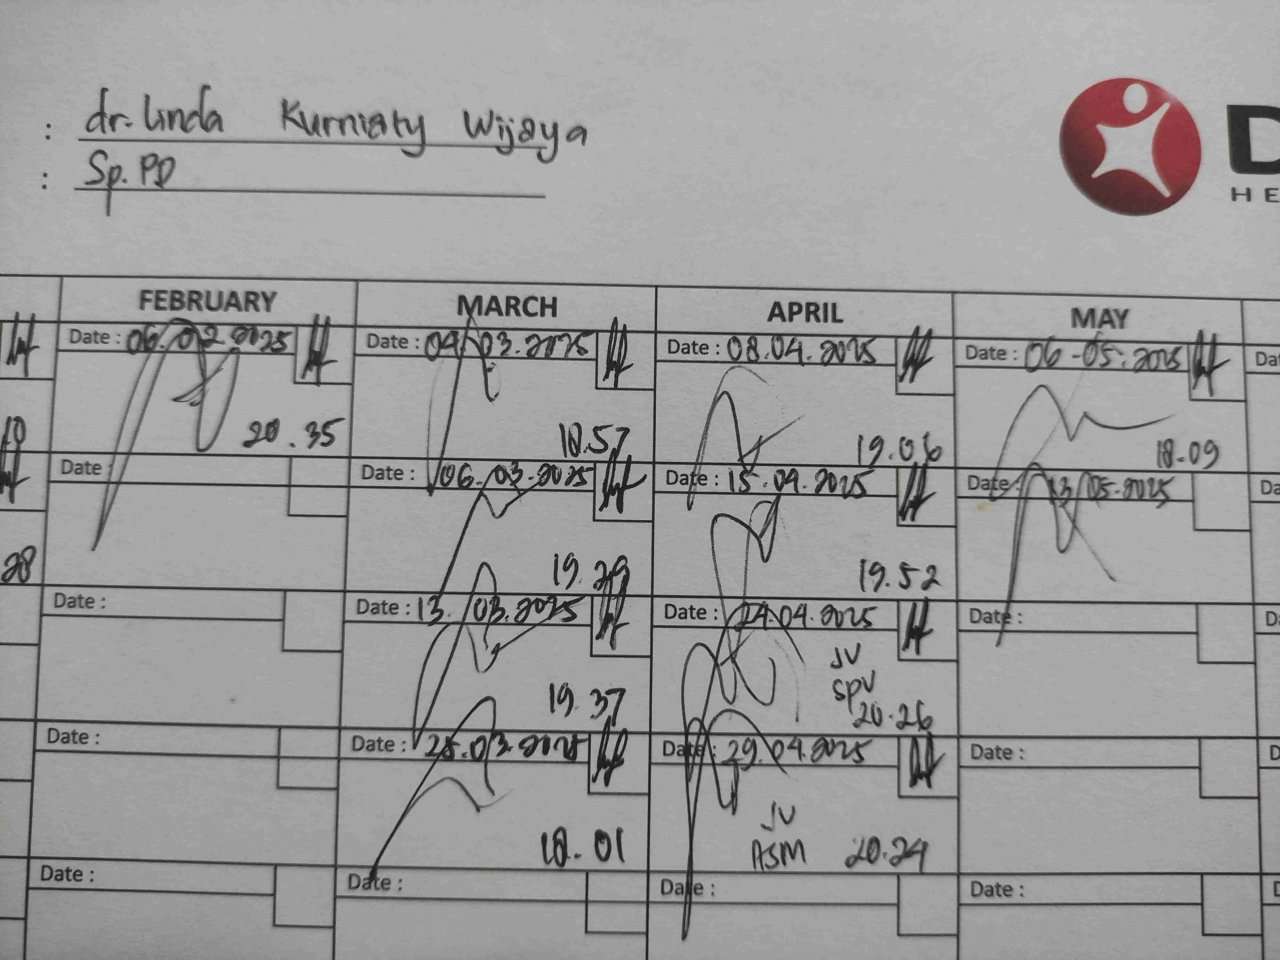 : dr. Linda Kurniaty Wijaya
: Sp. PD
D
HE
FEBRUARY MARCH APRIL MAY
Date : 06.02.2025 Date : 04.03.2025 Date : 08.04.2025 Date : 06-05.2025 Da
20.35 18.57 19.06 18.09
Date : Date : 06.03.2025 Date : 15.04.2025 Date : 13.05.2025 Da
28 19.29 19.52
Date : Date : 13.03.2025 Date : 24.04.2025 Date : D
JV
SPV
19.37 20.26
Date : Date : 25.03.2025 Date : 29.04.2025 Date : D
JV
18.01 ASM 20.24
Date : Date : Date : Date : D